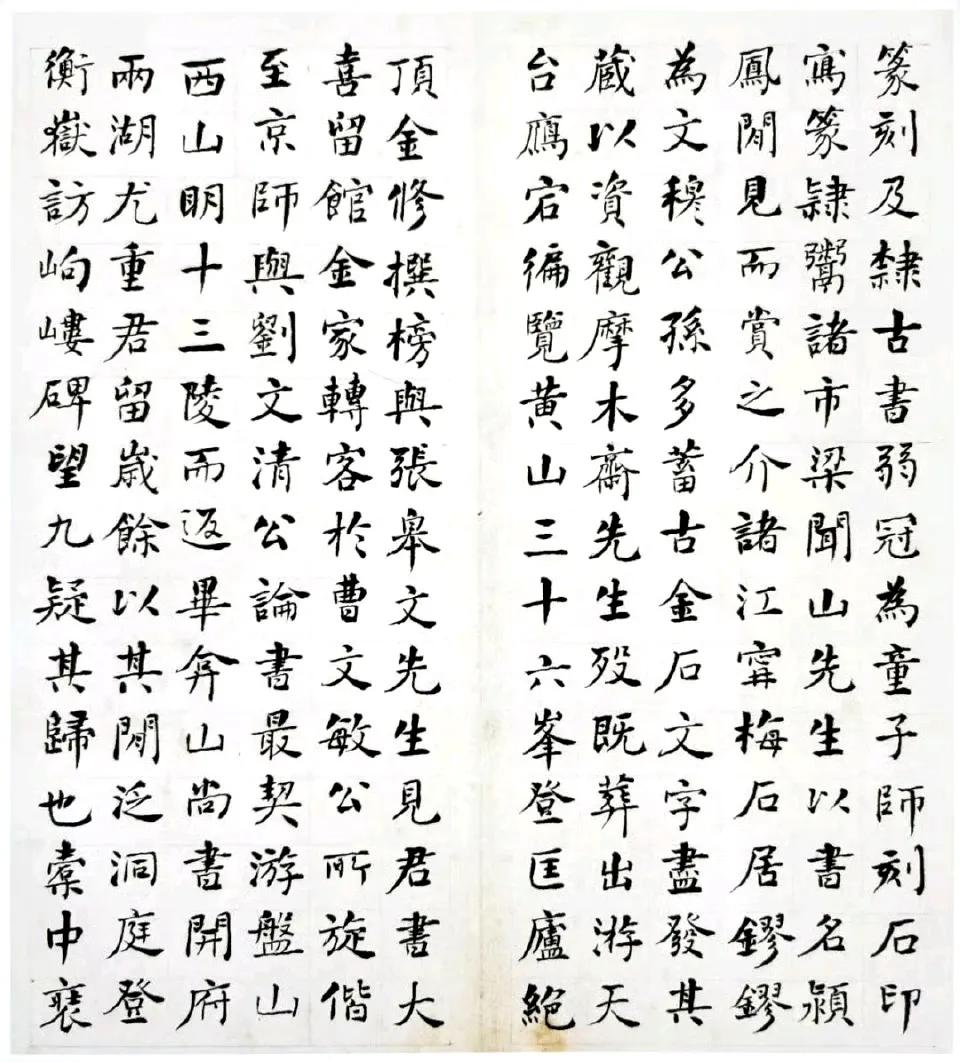 篆刻及隸古書弱冠為童子師刻石印
寫篆隸鬻諸市梁聞山先生以書名潁
鳳閒見而賞之介諸江甯梅石居鏐鏐
為文穆公孫多蓄古金石文字盡發其
藏以資觀摩木齋先生歿既葬出游天
台鴈宕徧覽黃山三十六峯登匡廬絕
頂金修撰榜與張皋文先生見君書大
喜留館金家轉客於曹文敏公所旋偕
至京師與劉文清公論書最契游盤山
西山明十三陵而返畢弇山尚書開府
兩湖尤重君留歲餘以其閒泛洞庭登
衡嶽訪岣嶁碑望九疑其歸也橐中裒